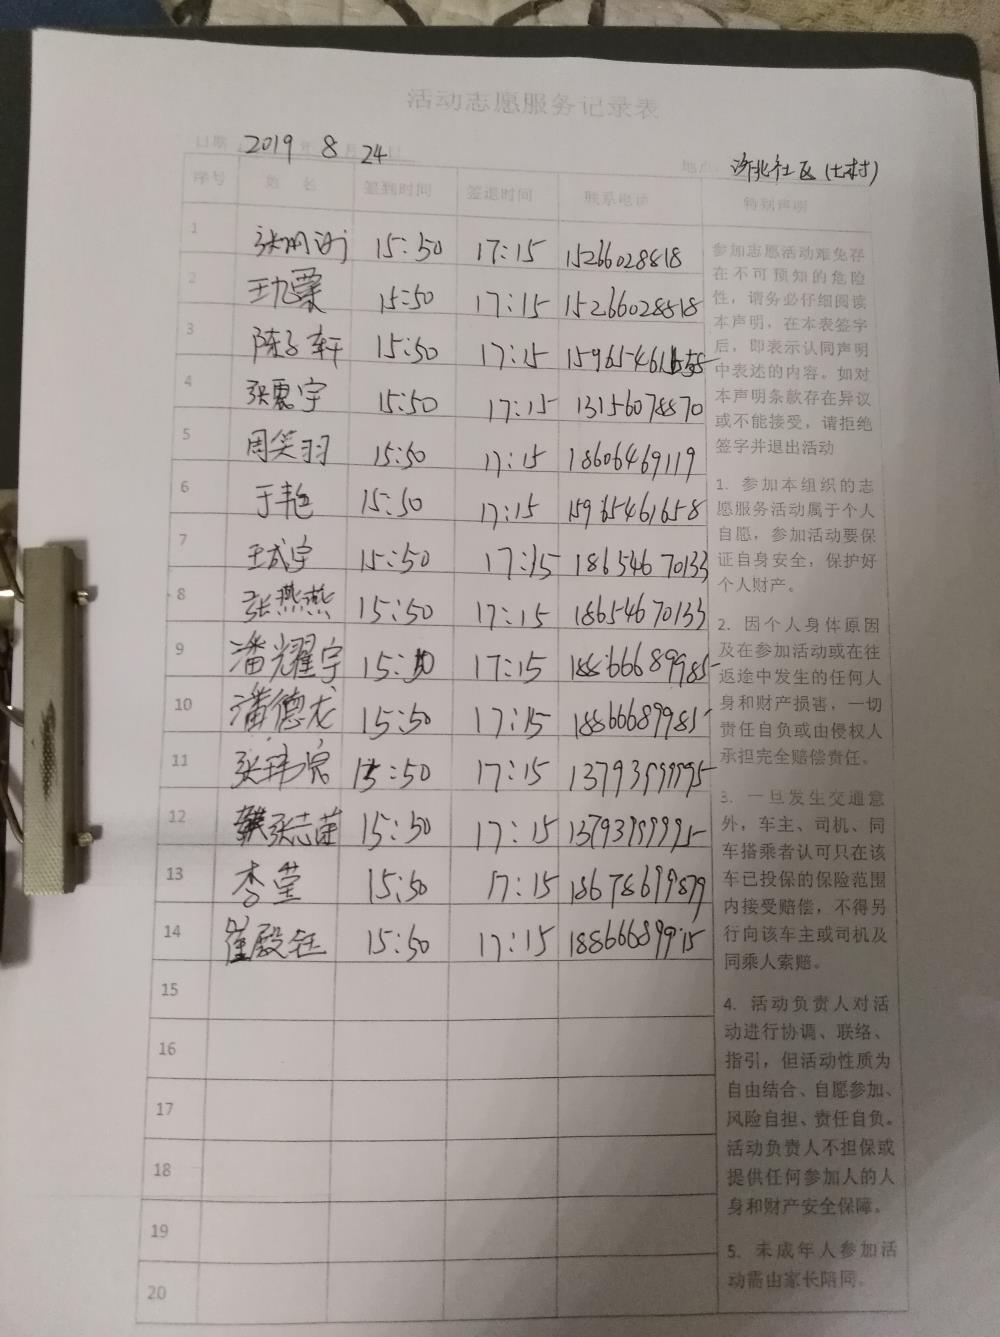 活动志愿服务记录表
日期 2019 年 8 月 24 日
地点 济北社区(七村)
序号 姓 名 签到时间 签退时间 联系电话 特别声明
1 15:50 17:15 15266028818
2 15:50 17:15 15266028818
3 陈子轩 15:50 17:15
4 张惠宇 15:50 17:15 13156078870
5 周笑羽 15:50 17:15 18606469119
6 于艳 15:50 17:15 15965461658
7 王成宇 15:50 17:15 18654670133
8 张燕燕 15:50 17:15 18654670133
9 潘耀宇 15:50 17:15 18866689985
10 潘德龙 15:50 17:15 18866689985
11 15:50 17:15 13793999995
12 15:50 17:15 13793999995
13 李莹 15:50 17:15 18678699879
14 崔殿钰 15:50 17:15 18866689915
15
16
17
18
19
20
参加志愿活动难免存
在不可预知的危险
性,请务必仔细阅读
本声明,在本表签字
后,即表示认同声明
中表述的内容。如对
本声明条款存在异议
或不能接受,请拒绝
签字并退出活动
1. 参加本组织的志
愿服务活动属于个人
自愿,参加活动要保
证自身安全,保护好
个人财产。
2. 因个人身体原因
及在参加活动或在往
返途中发生的任何人
身和财产损害,一切
责任自负或由侵权人
承担完全赔偿责任。
3. 一旦发生交通意
外,车主、司机、同
车搭乘者认可只在该
车已投保的保险范围
内接受赔偿,不得另
行向该车主或司机及
同乘人索赔。
4. 活动负责人对活
动进行协调、联络、
指引,但活动性质为
自由结合、自愿参加、
风险自担、责任自负。
活动负责人不担保或
提供任何参加人的人
身和财产安全保障。
5. 未成年人参加活
动需由家长陪同。